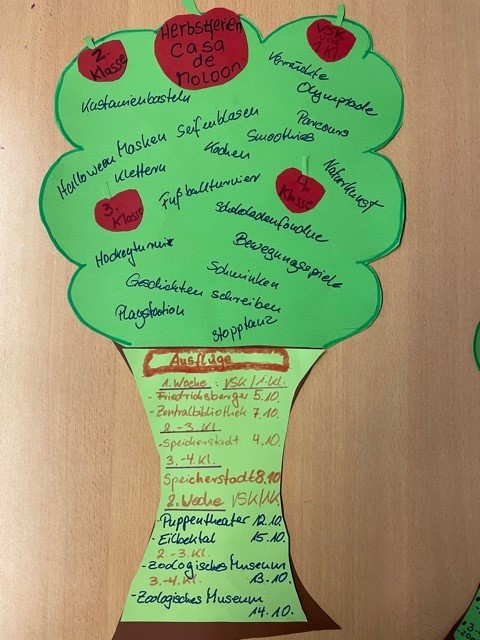 Herbstferien
Casa
de
Moloon
2.
Klasse
VSK
und
1 Kl.
Kastanienbasteln
Verrückte
Olympiade
Parcours
Halloween Masken
Seifenblasen
Smoothies
Kochen
Klettern
Naturkunst
3.
Klasse
Fußballturnier
4.
Klasse
Schokoladenfondue
Hockeyturnier
Bewegungsspiele
Schminken
Geschichten schreiben
Playstation
Stopptanz
Ausflüge
1. Woche: VSK/1.Kl.
- Friedrichsberger 5.10.
- Zentralbibliothek 7.10.
2.-3.Kl.
- Speicherstadt 4.10.
3.-4.Kl.
Speicherstadt 8.10
2. Woche VSK/1K.
- Puppentheater 12.10.
- Eilbektal 15.10.
2.-3.Kl.
- Zoologisches Museum
13.10.
3.-4.Kl.
- Zoologisches Museum
14.10.